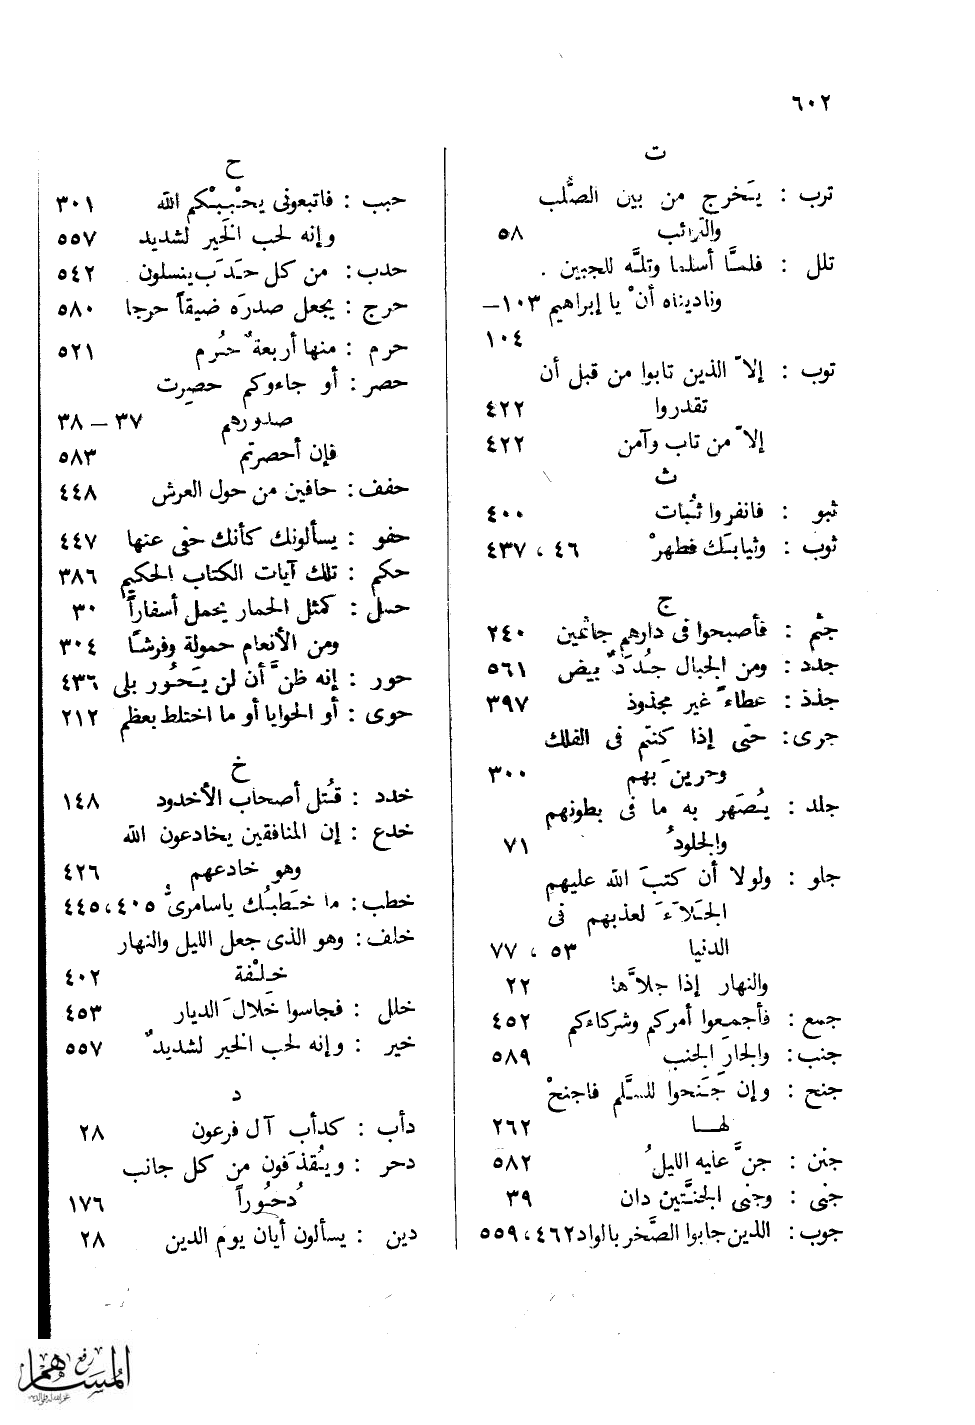 ٦٠٢
ت
ترب : يَخرج من بين الصُّلب
والترائب ٥٨
تلل : فلمَّا أسلما وتلَّه للجبين .
وناديناه أنْ يا إبراهيم ١٠٣–
١٠٤
توب : إلاّ الذين تابوا من قبل أن
تقدروا ٤٢٢
إلاّ من تاب وآمن ٤٢٢
ث
ثبو : فانفروا ثُبات ٤٠٠
ثوب : وثيابَك فطهرْ ٤٦ ، ٤٣٧
ج
جثم : فأصبحوا فى دارهم جاثمين ٢٤٠
جدد : ومن الجبال جُدَدٌ بيض ٥٦١
جذذ : عطاءً غير مجذوذ ٣٩٧
جرى: حتى إذا كنتم فى الفلك
وجرينَ بهم ٣٠٠
جلد : يُصَهر به ما فى بطونهم
والجلودُ ٧١
جلو : ولولا أن كتبَ الله عليهم
الجَلاَءَ لعذبهم فى
الدنيا ٥٣ ، ٧٧
والنهار إذا جلاَّها ٢٢
جمع : فأجمعوا أمركم وشركاءكم ٤٥٢
جنب: والجارِ الجنب ٥٨٩
جنح : وإن جَنحوا للسَّلم فاجنحْ
لهـــا ٢٦٢
جنن : جنَّ عليه الليلُ ٥٨٢
جنى : وجنى الجنَّتين دان ٣٩
جوب: الذين جابوا الصَّخر بالواد ٤٦٢، ٥٥٩
ح
حبب : فاتبعونى يحْبِبْكم الله ٣٠١
وإنه لحب الخير لشديد ٥٥٧
حدب: من كل حَدَب ينسلون ٥٤٢
حرج : يجعل صدرَه ضيقاً حرجا ٥٨٠
حرم : منها أربعةٌ حُرم ٥٢١
حصر : أو جاءوكم حصرت
صدورهم ٣٧ – ٣٨
فإن أحصرتم ٥٨٣
حفف: حافين من حول العرش ٤٤٨
حفو : يسألونك كأنك حفى عنها ٤٤٧
حكم : تلك آيات الكتاب الحكيم ٣٨٦
حمل : كمثل الحمار يحمل أسفاراً ٣٠
ومن الأنعام حمولة وفرشًا ٣٠٤
حور : إنه ظنَّ أن لن يَحُور بلى ٤٣٦
حوى : أو الحوايا أو ما اختلط بعظم ٢١٢
خ
خدد : قُتل أصحاب الأخدود ١٤٨
خدع : إن المنافقين يخادعون الله
وهو خادعهم ٤٢٦
خطب: ما خَطبُك ياسامرىُّ ٤٠٥، ٤٤٥
خلف: وهو الذى جعل الليل والنهار
خلْفة ٤٠٢
خلل : فجاسوا خلالَ الديار ٤٥٣
خير : وإنه لحب الخير لشديدٌ ٥٥٧
د
دأب : كدأب آل فرعون ٢٨
دحر : ويُقذَفون من كل جانب
دُحُوراً ١٧٦
دين : يسألون أيان يوم الدين ٢٨